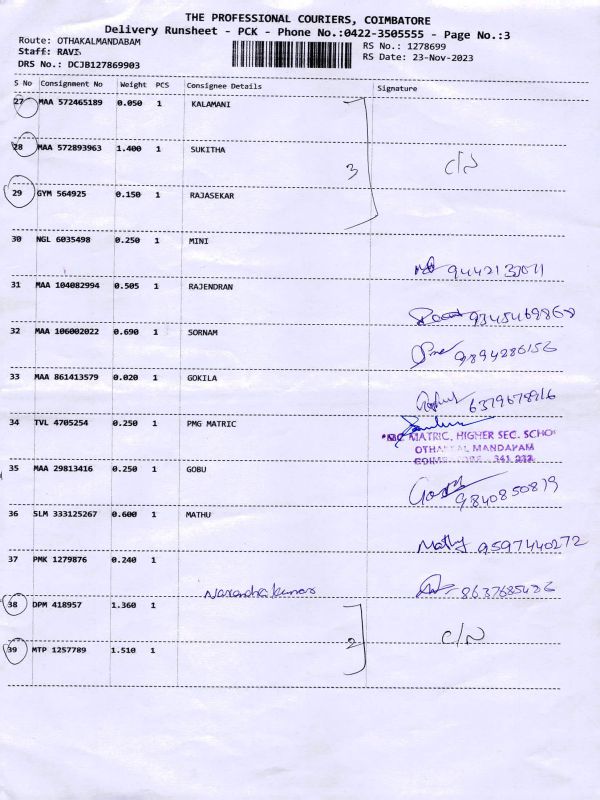 THE PROFESSIONAL COURIERS, COIMBATORE
Delivery Runsheet - PCK - Phone No.:0422-3505555 - Page No.:3
Route: OTHAKALMANDABAM
RS No.: 1278699
Staff: RAVI
RS Date: 23-Nov-2023
DRS No.: DCJB127869903
S No Consignment No Weight PCS Consignee Details Signature
27 MAA 572465189 0.050 1 KALAMANI
28 MAA 572893963 1.400 1 SUKITHA
3 C/N
29 GYM 564925 0.150 1 RAJASEKAR
30 NGL 6035498 0.250 1 MINI
31 MAA 104082994 0.505 1 RAJENDRAN
32 MAA 106002022 0.690 1 SORNAM
9894286156
33 MAA 861413579 0.020 1 GOKILA
6379678916
34 TVL 4705254 0.250 1 PMG MATRIC
MATRIC. HIGHER SEC. SCHO
MANDAPAM
35 MAA 29813416 0.250 1 GOBU
9840850819
36 SLM 333125267 0.600 1 MATHU
Mathy 9597440272
37 PMK 1279876 0.240 1
Narendra kumar 8637685426
38 DPM 418957 1.360 1
2 C/N
39 MTP 1257789 1.510 1